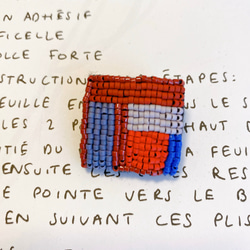 N ADHÉSIF
FICELLE
OLLE FORTE
STRUCTION ÉTAPES:
EUILLE EN
LES 2 P HAUT D
TIÉ DU A FEUI
ENSUITE LES RE
E POINTE VERS LE B
EN SUIVANT CES PLIS